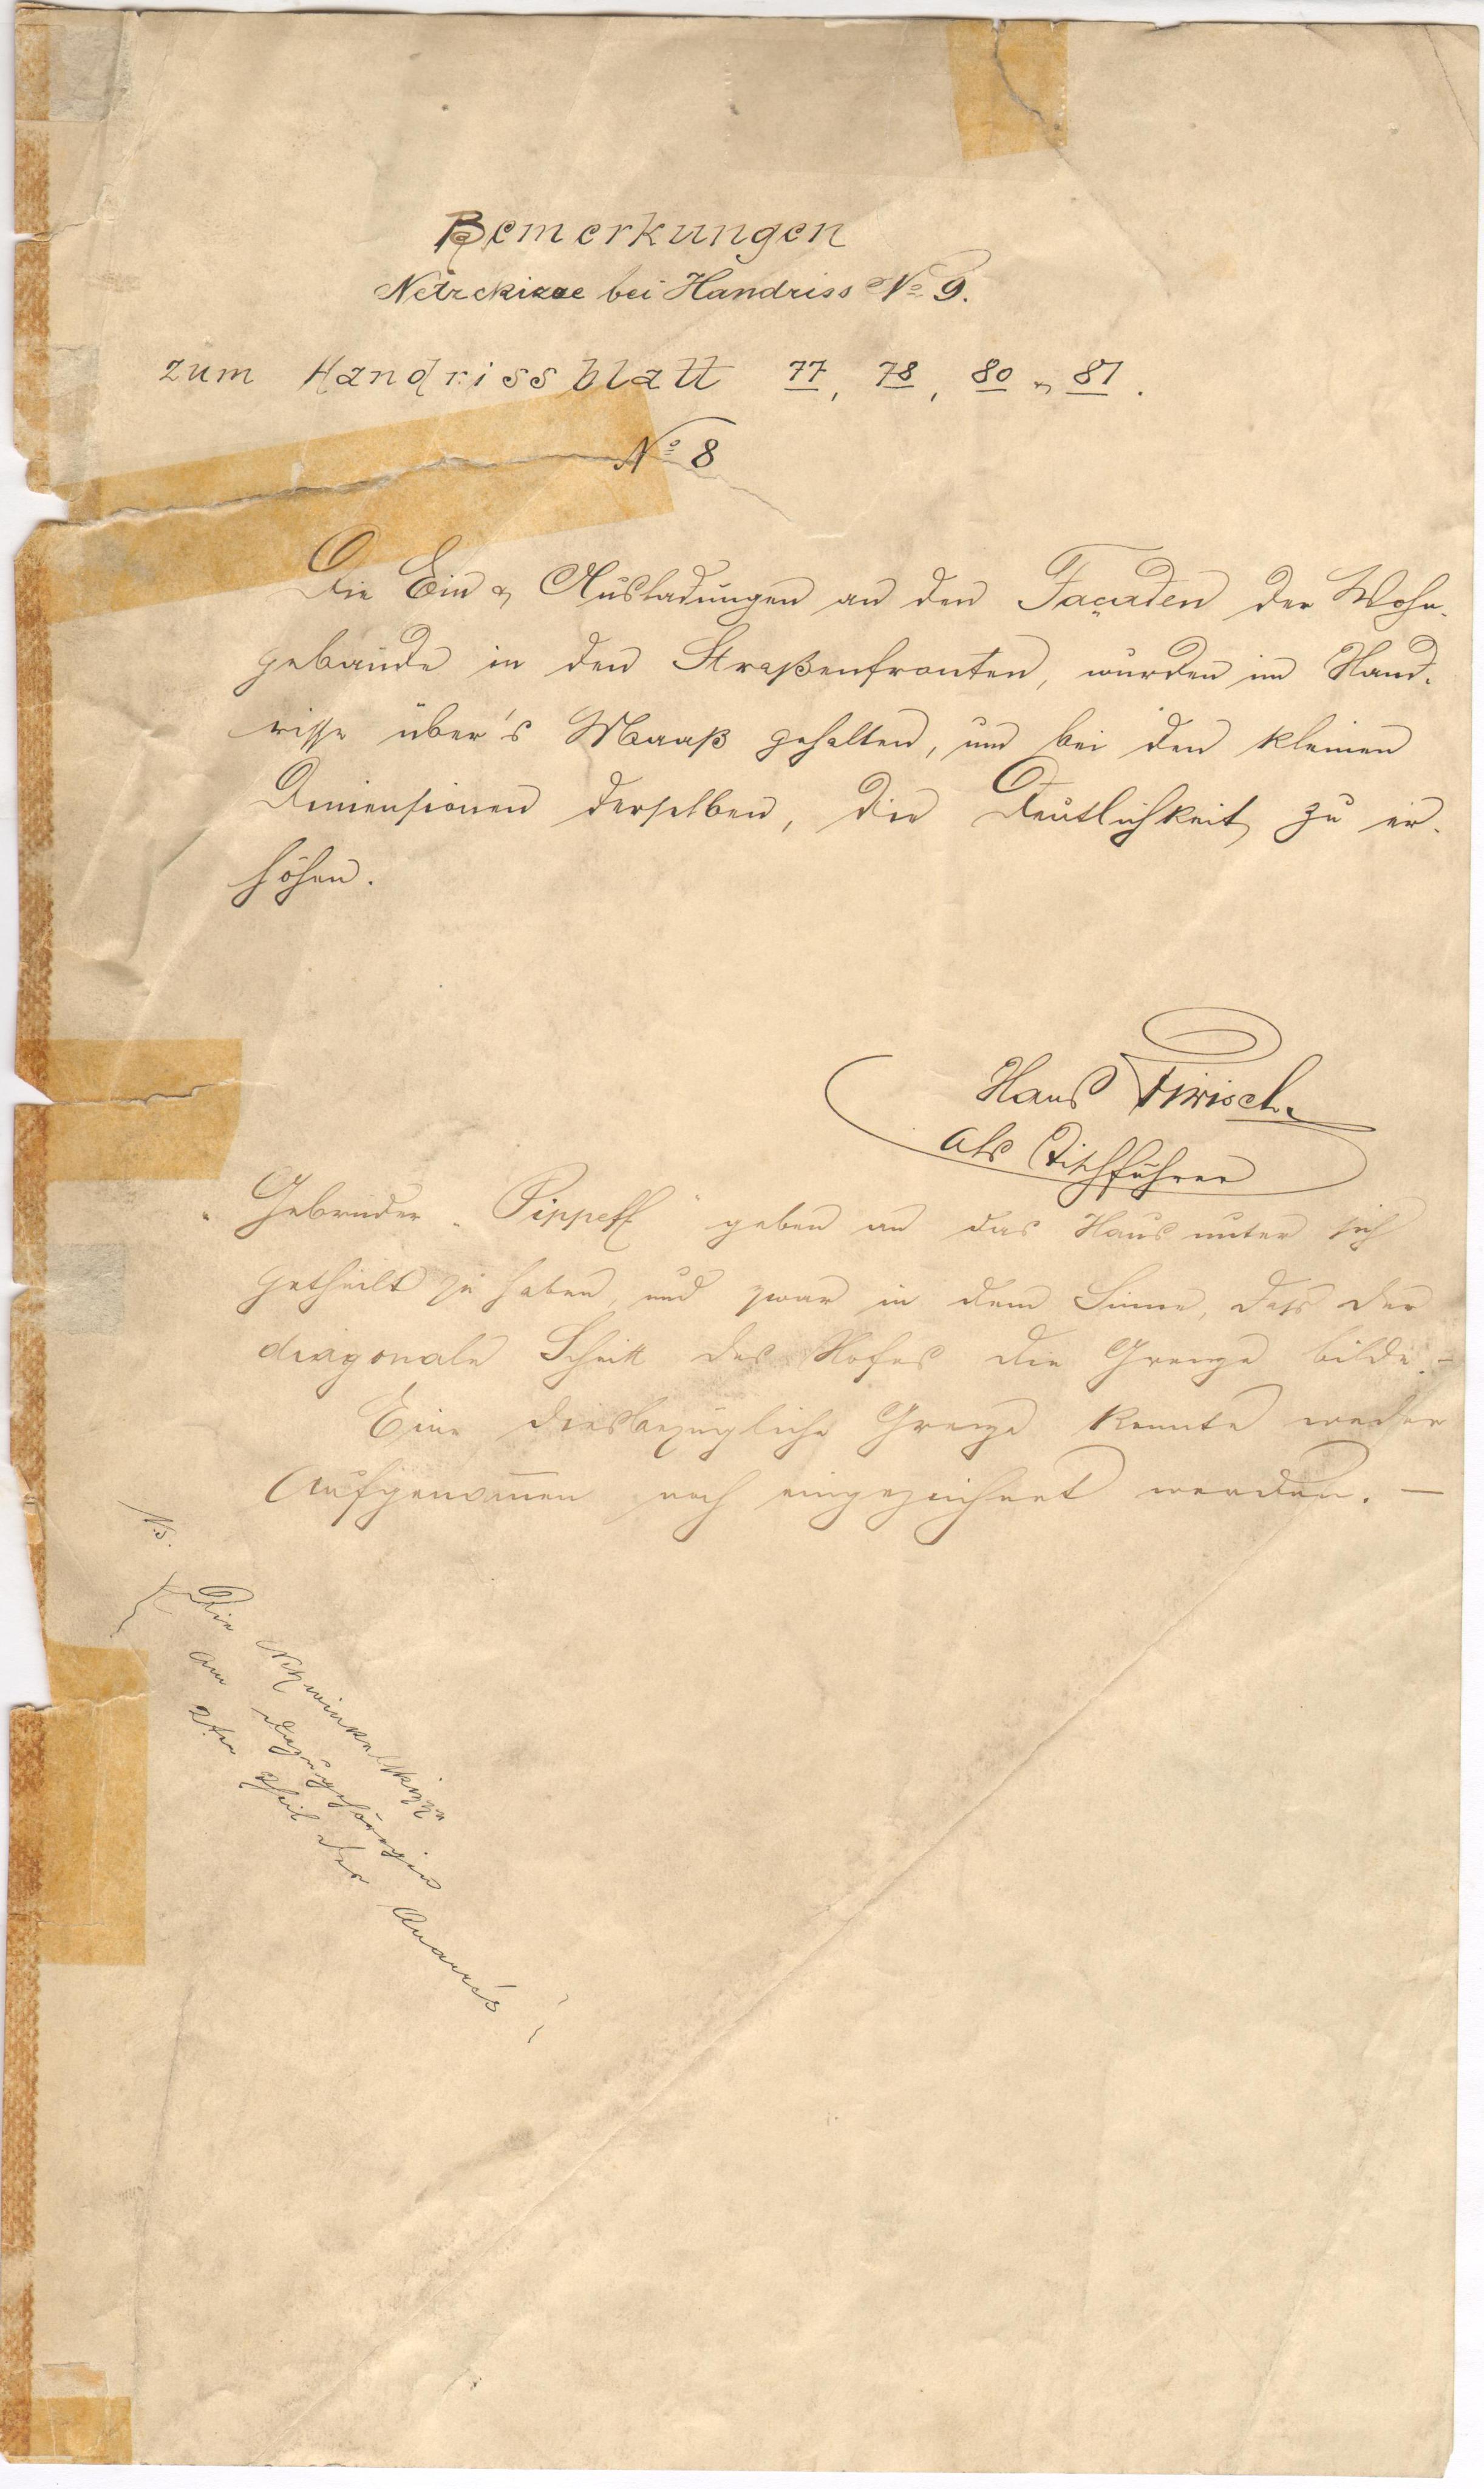 Bemerkungen
Netzskizze bei Handriss № 9.
zum Handrissblatt 77, 78, 80 & 81.
№ 8
Die Ein & Ausladungen an den Façaden der Wohn-
gebäude in den Straßenfronten, wurden im Hand-
risse über's Maaß gehalten, um bei den kleinen
Dimensionen derselben, die Deutlichkeit zu er-
höhen.
Hans
als Tischführer
Gebrüder „Pippeff“ geben an das Haus unter sich
getheilt zu haben, und zwar in dem Sinne, dass der
diagonale Schnitt des Hofes die Grenze bilde. –
Eine diesbezügliche Grenze konnte weder
aufgenom̄en noch eingezeichnet werden. –
Die
am dazugehörigen
2ten Theil der